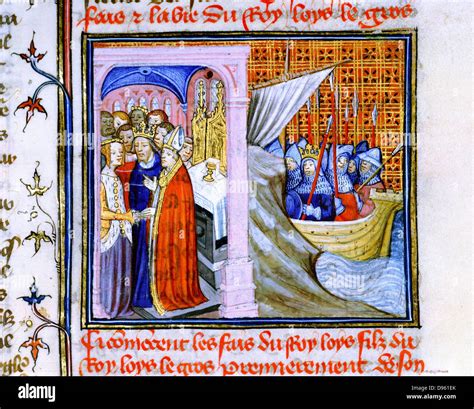 fais & la vie du Roy loys le gros
Ci comencent les fais du Roy loys filz du
Roy loys le gros premierement de son
alamy stock photo
D961EK
www.alamy.com